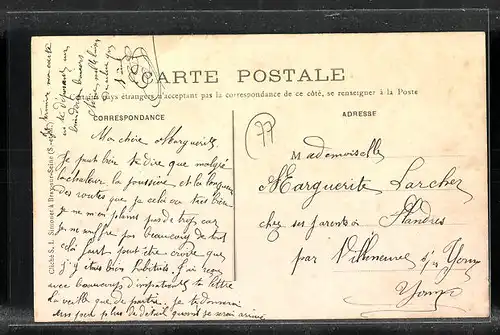 CARTE POSTALE
Certains pays étrangers n'acceptant pas la correspondance de ce côté, se renseigner à la Poste
CORRESPONDANCE
ADRESSE
77
Ma chère Marguerite,
Je peux bien te dire que malgré
la chaleur la poussière et la longueur
des routes que je cela va très bien
je ne m'en plains pas de trop car
je ne souffre pas beaucoup de tout
cela faut peut être croire que
j'y étais bien habitué. J'ai reçu
avec beaucoup d' ta lettre
la veille que de partir. Je te donnerai
un peu plus de détail quand je serai arrivé
Je termine ma carte
en te déposant un
Mademoiselle
Marguerite Larcher
chez ses parents à Flandres
par Villeneuve s/ Yonne
Yonne
Cliché S. L. Simonet à Brazey-Seine